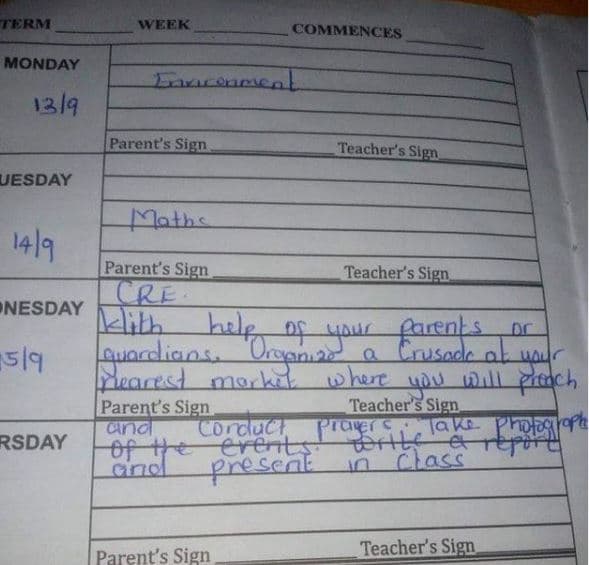 TERM WEEK COMMENCES
MONDAY
Environment
13/9
Parent's Sign Teacher's Sign
UESDAY
Maths
14/9
Parent's Sign Teacher's Sign
CRE.
ONESDAY
With help of your parents or
15/9
guardians. Organize a Crusade at your
nearest market where you will preach
Parent's Sign Teacher's Sign
and Conduct Prayers. Take Photograph
RSDAY
of the events. Write a report
and present in Class
Parent's Sign Teacher's Sign